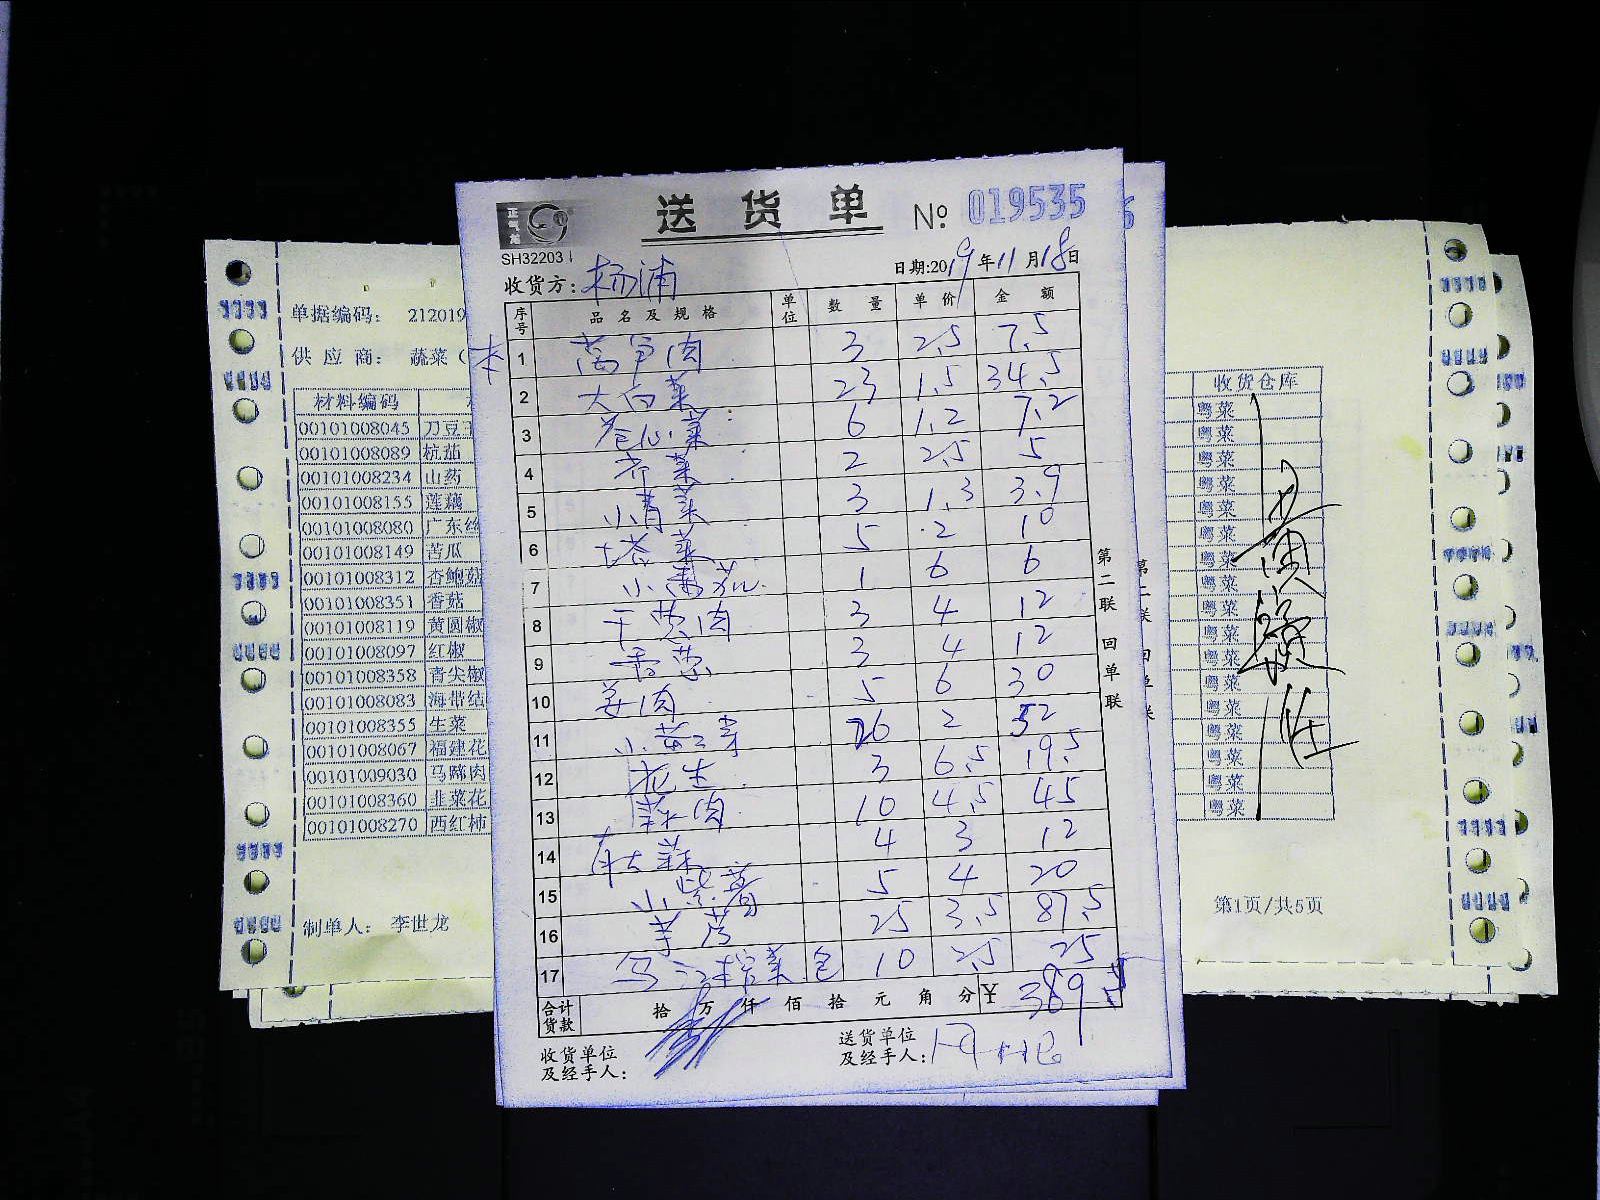 送货单 № 019535
正气龙
SH32203
收货方: 杨浦 日期:2019年11月18日
序号 品名及规格 单位 数量 单价 金额
本
1 莴笋肉 3 2.5 7.5
2 大白菜 23 1.5 34.5
3 卷心菜 6 1.2 7.2
4 芹菜 2 2.5 5
5 小青菜 3 1.3 3.9
6 塔菜 5 2 10
7 6 6
8 3 4 12
9 香葱 3 4 12
10 姜肉 5 6 30
11 小黄 26 2 52
12 花生 3 6.5 19.5
13 肉 10 4.5 45
14 大蒜 4 3 12
15 小紫薯 5 4 20
16 芋艿 25 3.5 87.5
17 菜 包 10 2.5 25
合计货款 拾万仟佰拾元角分 ¥ 389.5
收货单位及经手人:
送货单位及经手人:
第二联 回单联
单据编码: 212019
供应商: 蔬菜(
材料编码
00101008045 刀豆
00101008089 杭茄
00101008234 山药
00101008155 莲藕
00101008080 广东丝
00101008149 苦瓜
00101008312 杏鲍菇
00101008351 香菇
00101008119 黄圆椒
00101008097 红椒
00101008358 青尖椒
00101008083 海带结
00101008355 生菜
00101008067 福建花
00101009030 马蹄肉
00101008360 韭菜花
00101008270 西红柿
制单人: 李世龙
收货仓库
粤菜
粤菜
粤菜
粤菜
粤菜
粤菜
粤菜
粤菜
粤菜
粤菜
粤菜
粤菜
粤菜
粤菜
粤菜
粤菜
粤菜
第1页/共5页